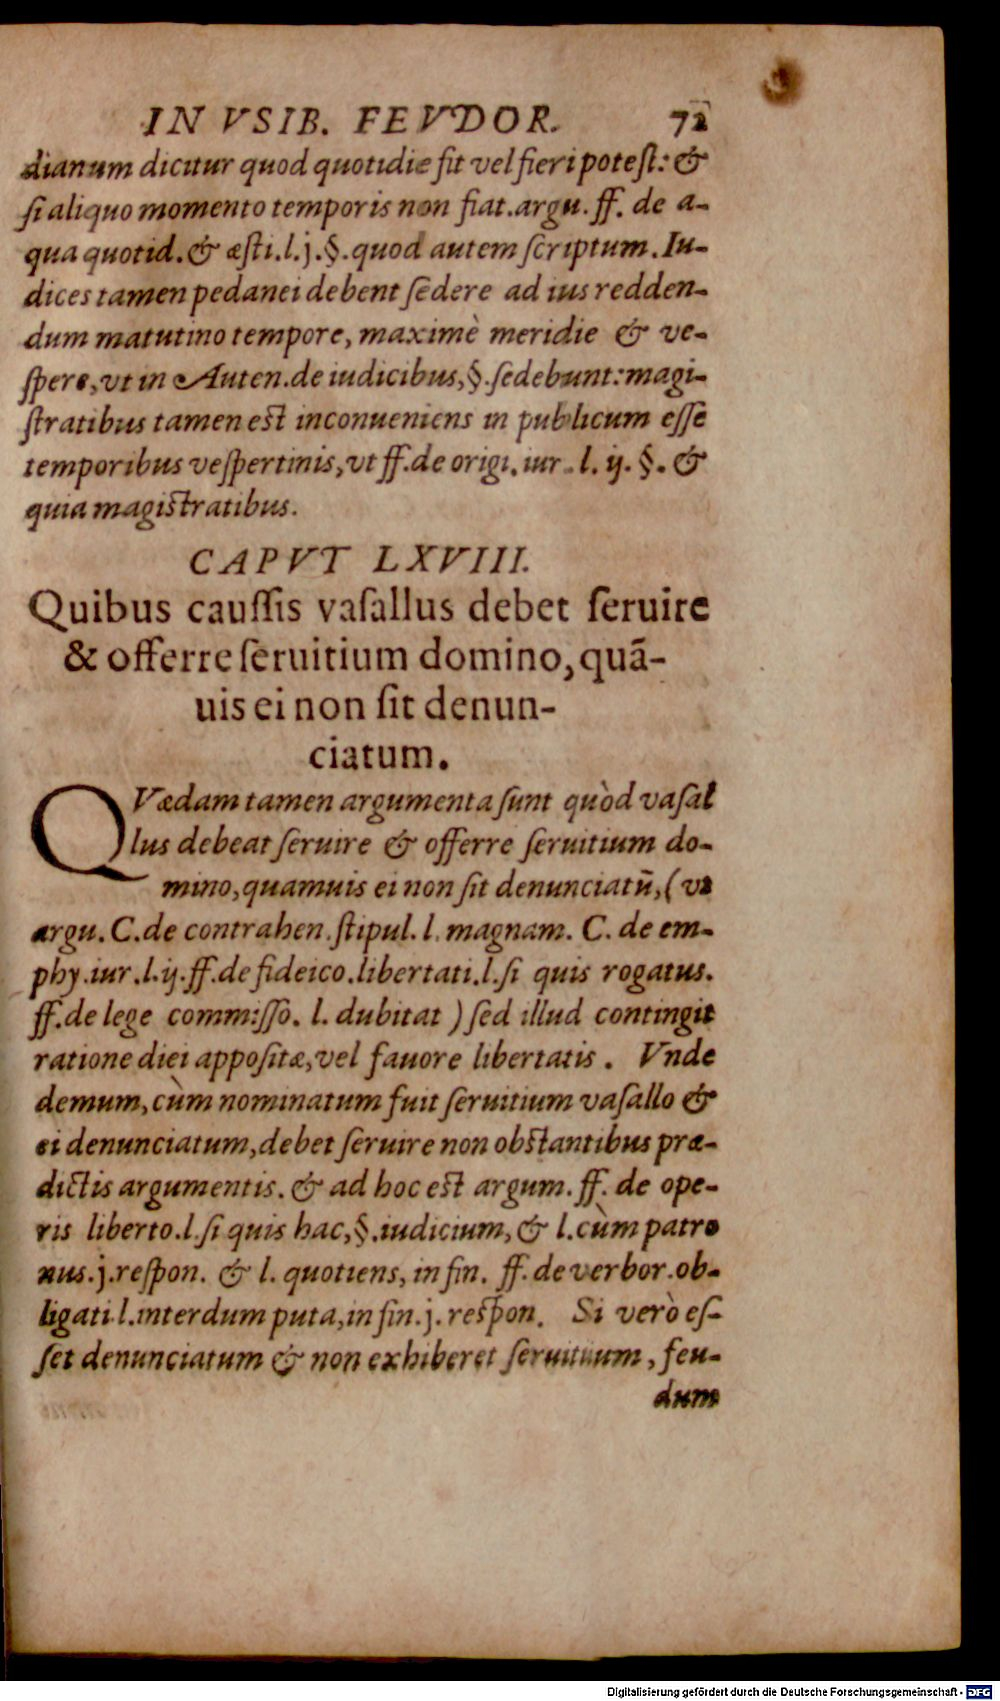 IN VSIB. FEVDOR. 72
dianum dicitur quod quotidie fit vel fieri potest: &
si aliquo momento temporis non fiat. argu. ff. de a-
qua quotid. & æsti. l. j. §. quod autem scriptum. Iu-
dices tamen pedanei debent sedere ad ius redden-
dum matutino tempore, maximè meridie & ve-
spere, vt in Auten. de iudicibus, §. sedebunt: magi-
stratibus tamen est inconueniens in publicum esse
temporibus vespertinis, vt ff. de origi. iur. l. ij. §. &
quia magistratibus.
CAPVT LXVIII.
Quibus caussis vasallus debet seruire
& offerre seruitium domino, quã-
uis ei non sit denun-
ciatum.
QVædam tamen argumenta sunt quòd vasal
lus debeat seruire & offerre seruitium do-
mino, quamuis ei non sit denunciatũ, (vt
argu. C. de contrahen. stipul. l. magnam. C. de em-
phy. iur. l. ij. ff. de fideico. libertati. l. si quis rogatus.
ff. de lege commisso. l. dubitat) sed illud contingit
ratione diei appositæ, vel fauore libertatis. Vnde
demum, cùm nominatum fuit seruitium vasallo &
ei denunciatum, debet seruire non obstantibus præ-
dictis argumentis. & ad hoc est argum. ff. de ope-
ris liberto. l. si quis hac, §. iudicium, & l. cùm patro
nus. j. respon. & l. quotiens, in fin. ff. de verbor. ob-
ligati. l. interdum puta, in fin. j. respon. Si verò es-
set denunciatum & non exhiberet seruitium, feu-
dum
Digitalisierung gefördert durch die Deutsche Forschungsgemeinschaft - DFG